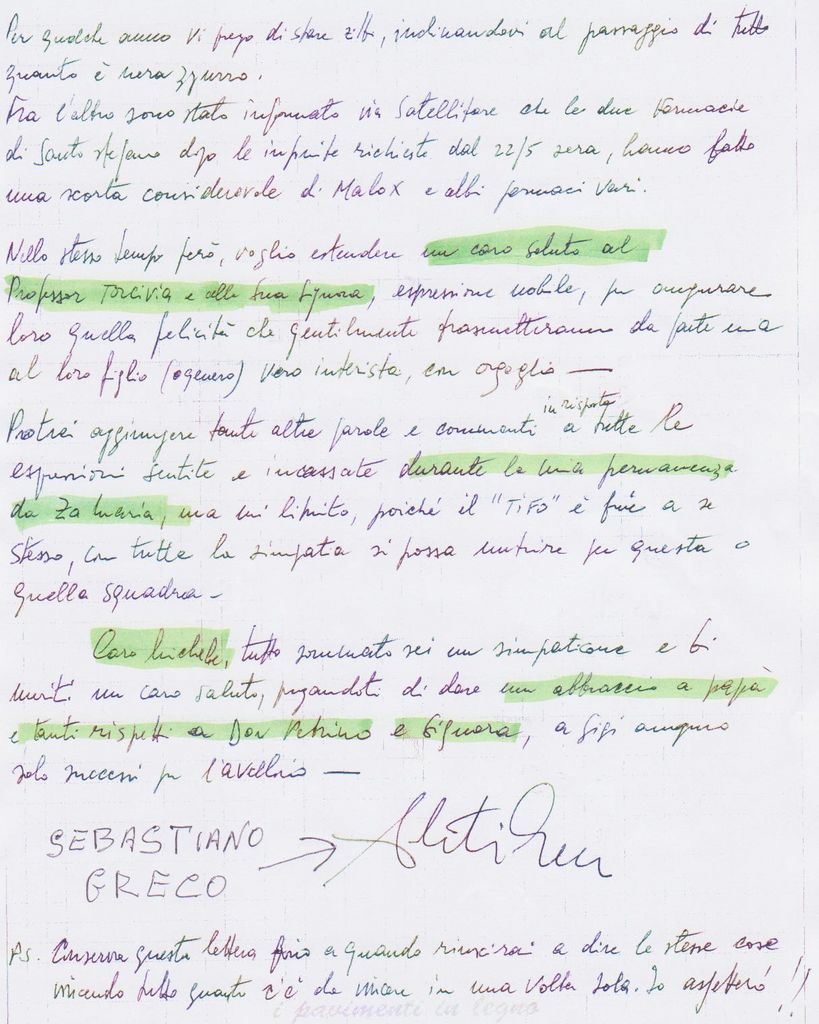 Per qualche anno vi prego di stare zitti, inclinandovi al passaggio di tutto
quanto è nerazzurro.
Fra l'altro sono stato informato via Satellitare che le due Farmacie
di Santo Stefano dopo le infinite richieste dal 22/5 sera, hanno fatto
una scorta considerevole di Malox e altri farmaci vari.
Nello stesso tempo però, voglio estendere un caro saluto al
Professor Torcivia e alla Sua Signora, espressione nobile, per augurare
loro quella felicità che gentilmente trasmetteranno da parte mia
al loro figlio (o genero) vero interista, con orgoglio —
Potrei aggiungere tante altre parole e commenti in risposta a tutte le
espressioni sentite e incassate durante la mia permanenza
da Za Maria, ma mi limito, poiché il "TIFO" è fine a se
stesso, con tutta la simpatia si possa nutrire per questa o
quella squadra -
Caro Michele, tutto sommato sei un simpaticone e ti
meriti un caro saluto, pregandoti di dare un abbraccio a papà
e tanti rispetti a Don Petrino e Signora, a Gigi auguro
solo successi per l'avellino —
SEBASTIANO
GRECO
P.S. Conserva questa lettera fino a quando riuscirai a dire le stesse cose
vincendo tutto quanto c'è da vincere in una volta sola. Io aspetterò !!
i pavimenti in legno